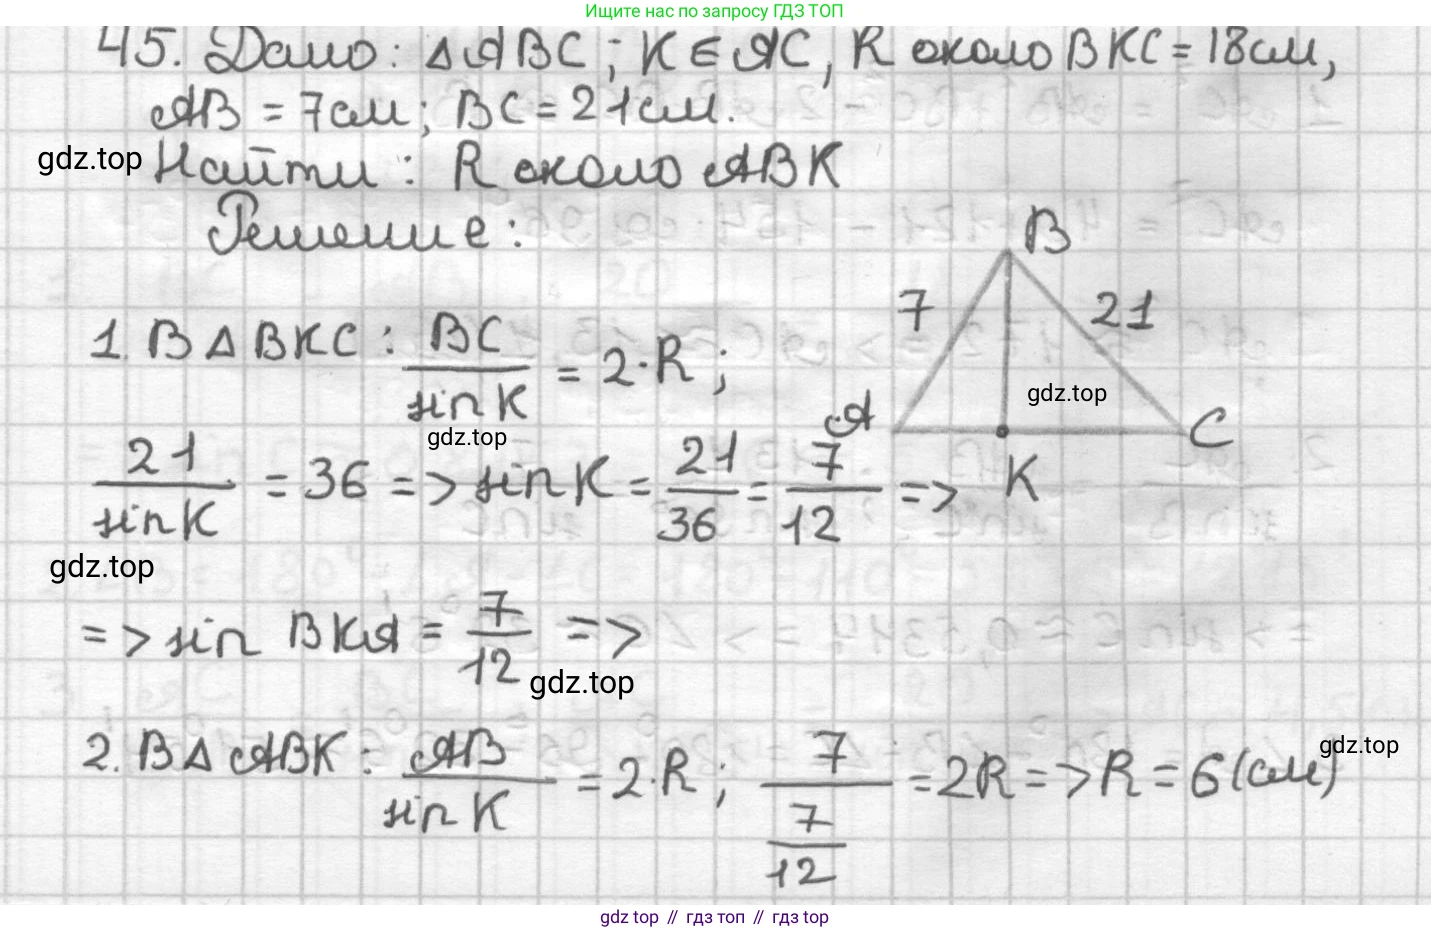 Ищите нас по запросу ГДЗ ТОП
45. Дано: △ABC; K ∈ AC, R около BKC = 18см,
AB = 7см; BC = 21см.
gdz.top
Найти: R около ABK
Решение:
B
7
21
1. В △ BKC: BC/sin K = 2·R;
gdz.top
A
C
K
gdz.top
21/sin K = 36 => sin K = 21/36 = 7/12 =>
gdz.top
=> sin BKA = 7/12 =>
gdz.top
2. В △ ABK: AB/sin K = 2·R; 7/(7/12) = 2R => R = 6(см)
gdz.top
gdz top // гдз топ // gdz top